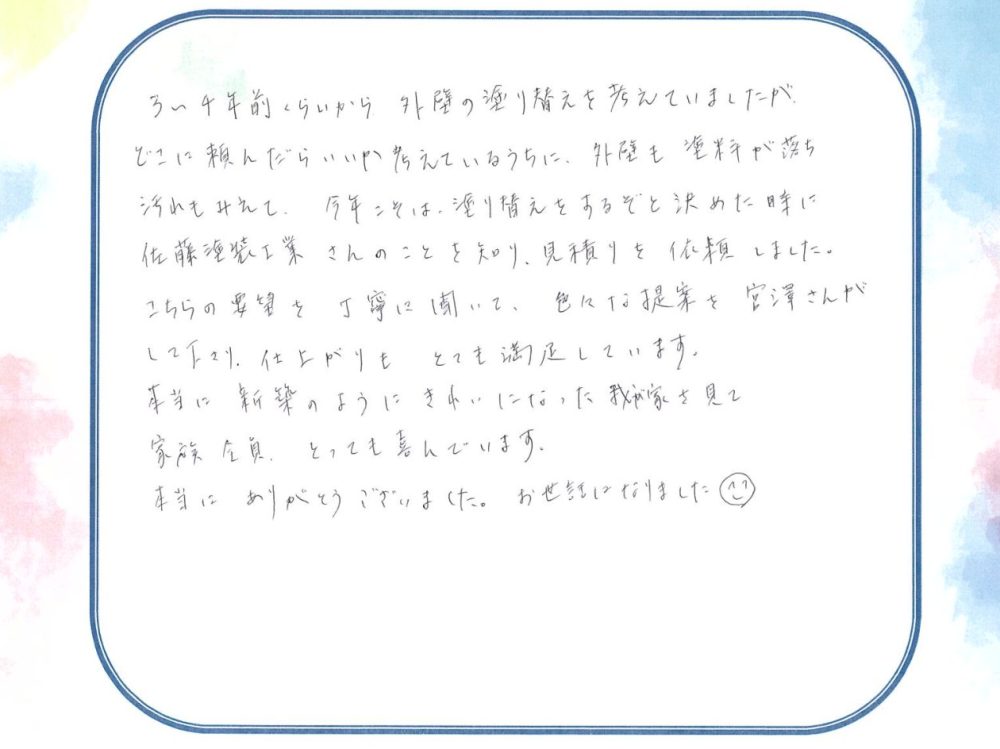 3〜4年前くらいから 外壁の塗り替えを考えていましたが、
どこに頼んだらいいか考えているうちに、外壁も 塗料が落ち
汚れもみえて、 今年こそは、塗り替えをするぞと決めた時に
佐藤塗装工業さんのことを知り、見積りを依頼しました。
こちらの要望を 丁寧に聞いて、 色々な提案を宮澤さんが
して下さり、仕上がりも とても満足しています。
本当に 新築のようにきれいになった我が家を見て
家族全員、とっても喜んでいます。
本当に ありがとうございました。 お世話になりました